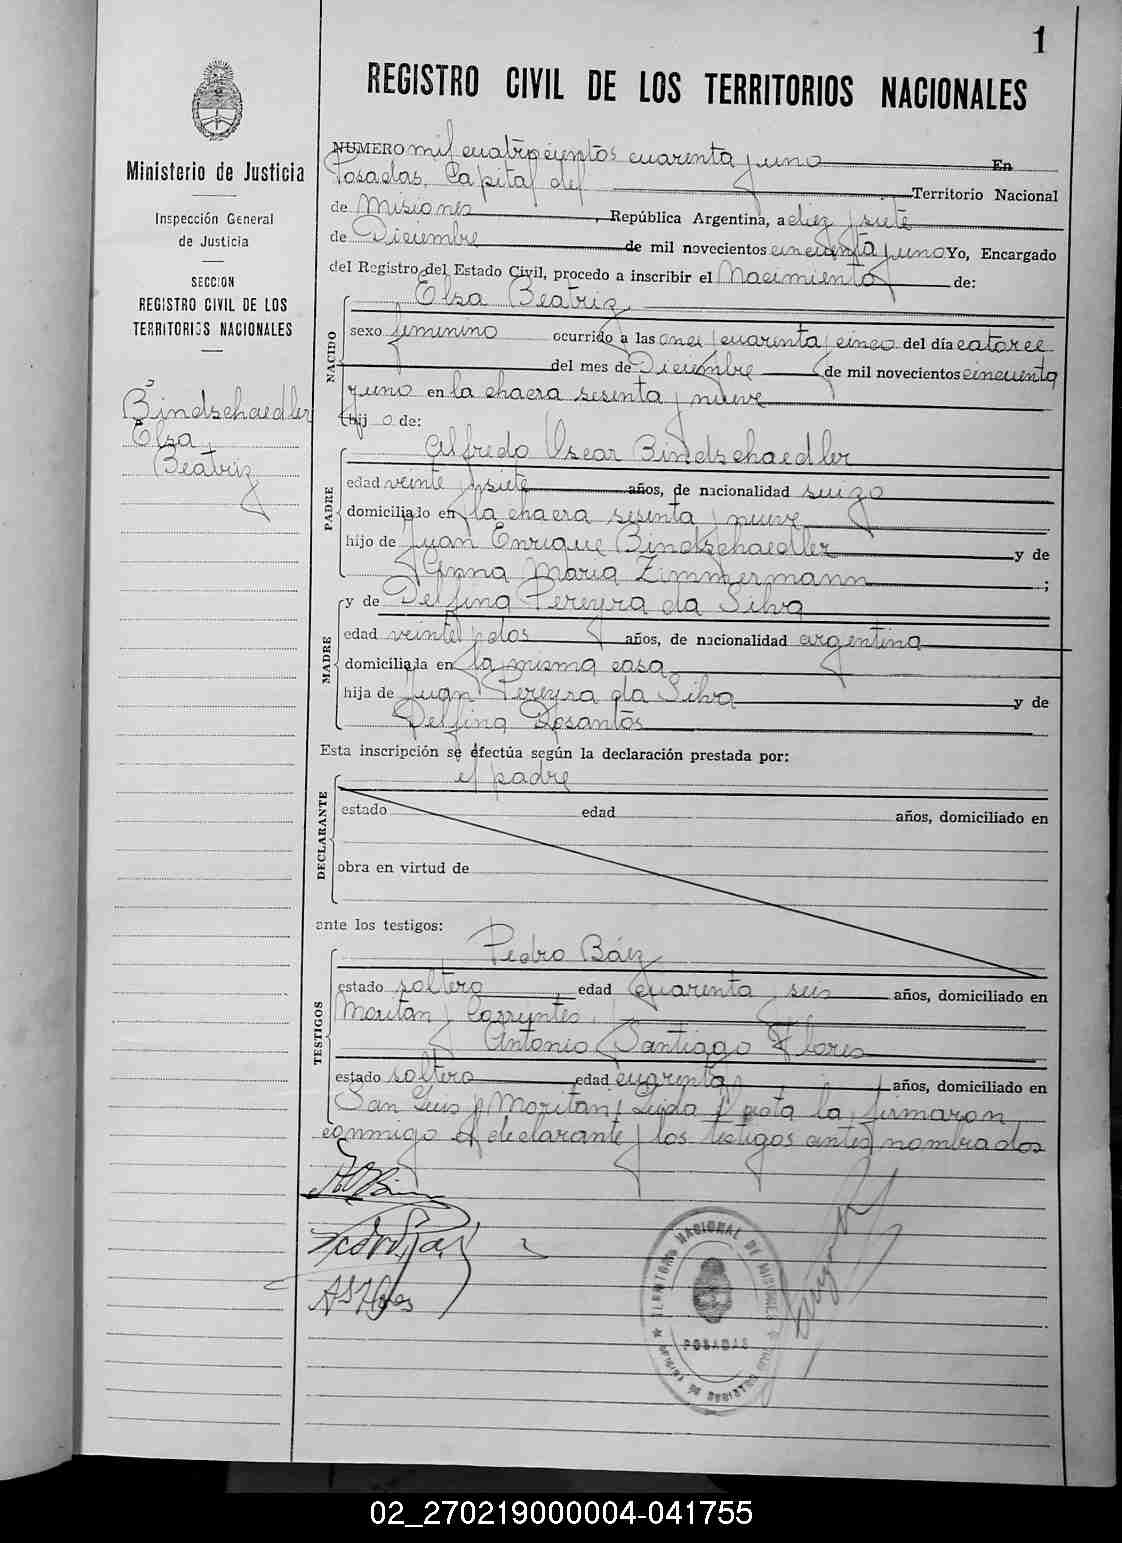 1
REGISTRO CIVIL DE LOS TERRITORIOS NACIONALES
Ministerio de Justicia
Inspección General
de Justicia
SECCION
REGISTRO CIVIL DE LOS
TERRITORIOS NACIONALES
Bindschaedler
Elsa
Beatriz
NUMERO mil cuatrocientos cuarenta y uno En
Posadas, Capital del Territorio Nacional
de Misiones, República Argentina, a diez y siete
de Diciembre de mil novecientos cincuenta y uno Yo, Encargado
del Registro del Estado Civil, procedo a inscribir el Nacimiento de:
NACIDO
Elsa Beatriz
sexo femenino ocurrido a las once y cuarenta y cinco del día catorce
del mes de Diciembre de mil novecientos cincuenta
y uno en la chacra sesenta y nueve
hij a de:
PADRE
Alfredo Oscar Bindschaedler
edad veinte y siete años, de nacionalidad suizo
domiciliado en la chacra sesenta y nueve
hijo de Juan Enrique Bindschaedler y de
Anna Maria Zimmermann ;
MADRE
y de Delfina Pereyra da Silva
edad veinte y dos años, de nacionalidad argentina
domiciliada en la misma casa
hija de Juan Pereyra da Silva y de
Delfina Dosantos
Esta inscripción se efectúa según la declaración prestada por:
el padre
DECLARANTE
estado edad años, domiciliado en
obra en virtud de
ante los testigos:
TESTIGOS
Pedro Báez
estado soltero, edad cuarenta y seis años, domiciliado en
Moritan y Corrientes.
Antonio Santiago Flores
estado soltero edad cuarenta años, domiciliado en
San Luis y Moritan/ Leida y esta la firmaron
conmigo el declarante y los testigos antes nombrados
TERRITORIO NACIONAL DE MISIONES
POSADAS
02_270219000004-041755